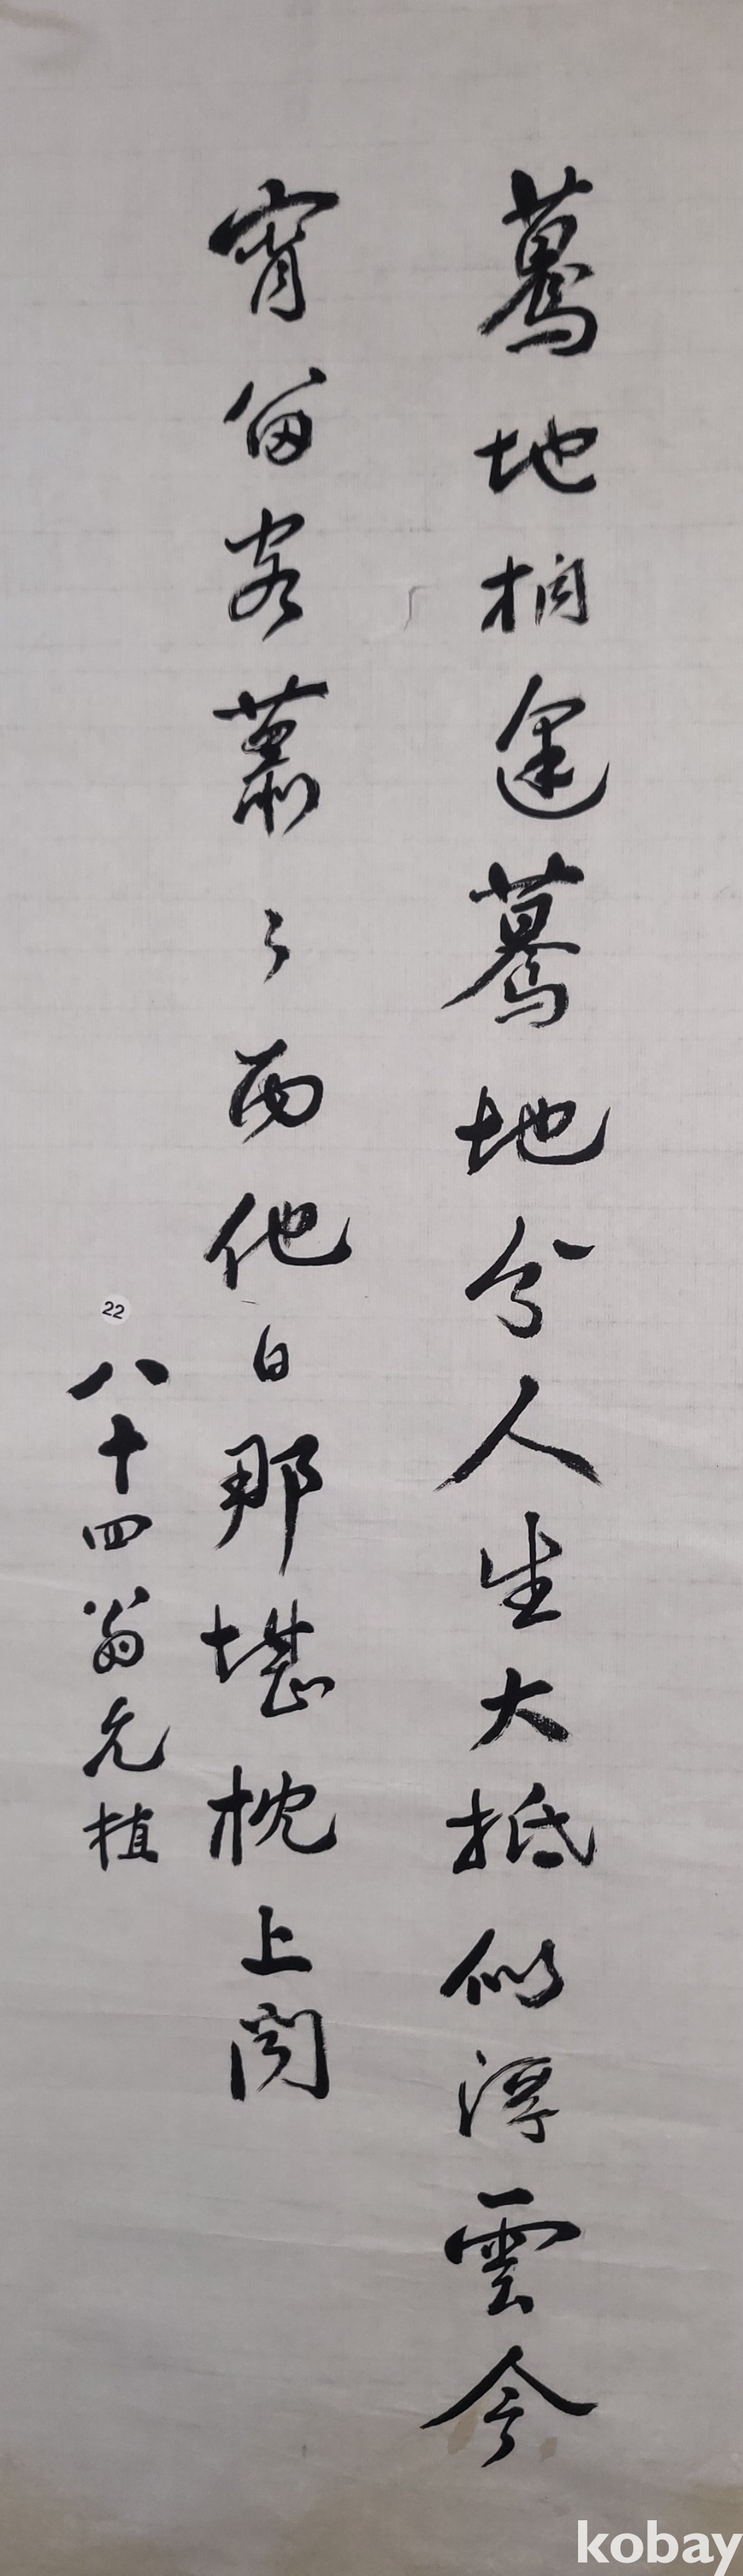 驀地相逢驀地分人生大抵似浮雲今
宵留客蕭〻雨他日那堪枕上聞
八十四翁允植
22
kobay